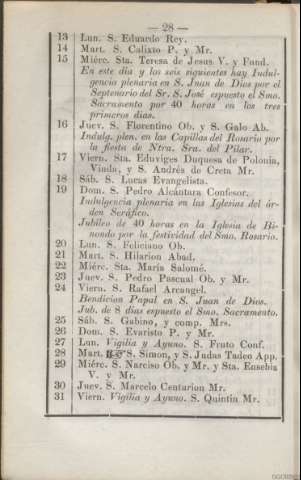 — 28 —
13 Lun. S. Eduardo Rey.
14 Mart. S. Calixto P. y Mr.
15 Miérc. Sta. Teresa de Jesus V. y Fund.
En este dia y los seis siguientes hay Indul-
gencia plenaria en S. Juan de Dios por el
Septenario del Sr. S. José espuesto el Smo.
Sacramento por 40 horas en los tres
primeros dias.
16 Juev. S. Florentino Ob. y S. Galo Ab.
Indulg. plen. en las Capillas del Rosario por
la fiesta de Ntra. Sra. del Pilar.
17 Viern. Sta. Eduviges Duquesa de Polonia,
Viuda, y S. Andrés de Creta Mr.
18 Sáb. S. Lucas Evangelista.
19 Dom. S. Pedro Alcántara Confesor.
Indulgencia plenaria en las Iglesias del ór-
den Seráfico.
Jubileo de 40 horas en la Iglesia de Bi-
nondo por la festividad del Smo. Rosario.
20 Lun. S. Feliciano Ob.
21 Mart. S. Hilarion Abad.
22 Miérc. Sta. María Salomé.
23 Juev. S. Pedro Pascual Ob. y Mr.
24 Viern. S. Rafael Arcangel.
Bendicion Papal en S. Juan de Dios.
Jub. de 8 dias espuesto el Smo. Sacramento.
25 Sáb. S. Gabino, y comp. Mrs.
26 Dom. S. Evaristo P. y Mr.
27 Lun. Vigilia y Ayuno. S. Fruto Conf.
28 Mart. S. Simon, y S. Judas Tadeo App.
29 Miérc. S. Narciso Ob. y Mr. y Sta. Eusebia
V. y Mr.
30 Juev. S. Marcelo Centurion Mr.
31 Viern. Vigilia y Ayuno. S. Quintin Mr.